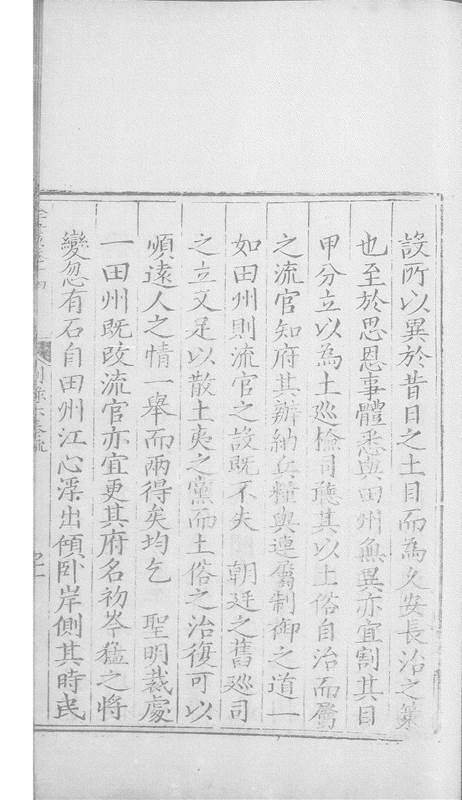 設所以異於昔日之土目而為久安長治之策
也至於思恩事體悉與田州無異亦宜割其目
甲分立以為土巡檢司聽其以土俗自治而屬
之流官知府其辦納兵糧與連屬制御之道一
如田州則流官之設既不失　朝廷之舊巡司
之立又足以散土夷之黨而土俗之治復可以
順遠人之情一舉而兩得矣均乞　聖明裁處
一田州既改流官亦宜更其府名初岑猛之將
變忽有石自田州江心浮出傾卧岸側其時民